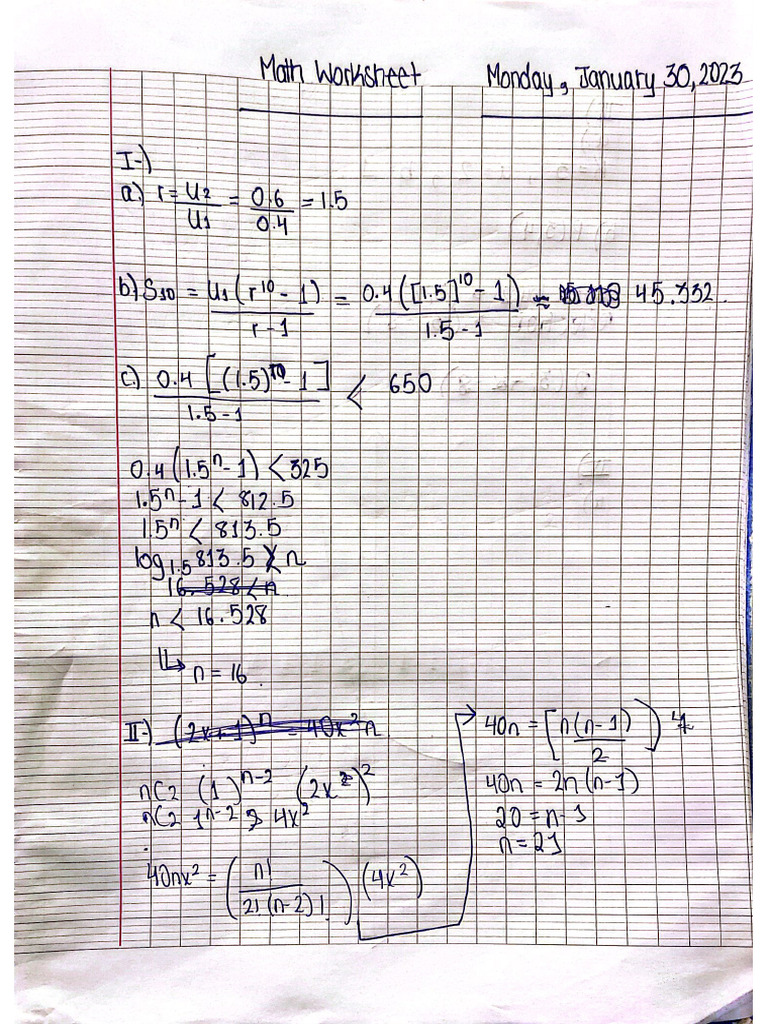 Math Worksheet Monday, January 30, 2023
I-)
a) r = u2/u1 = 0.6/0.4 = 1.5
b) S10 = u1(r^10 - 1)/r - 1 = 0.4([1.5]^10 - 1)/1.5 - 1 ≈ 45.332
c) 0.4[(1.5)^n - 1]/1.5 - 1 < 650
0.4(1.5^n - 1) < 325
1.5^n - 1 < 812.5
1.5^n < 813.5
log1.5 813.5 < n
16.528 < n
n < 16.528
↳ n = 16
II-) (2x + 1)^n = 40x^2n
nC2 (1)^n-2 (2x)^2
nC2 1^n-2 4x^2
40nx^2 = (n!/2!(n-2)!) (4x^2)
40n = [n(n-1)/2) 4
40n = 2n(n-1)
20 = n-1
n = 21